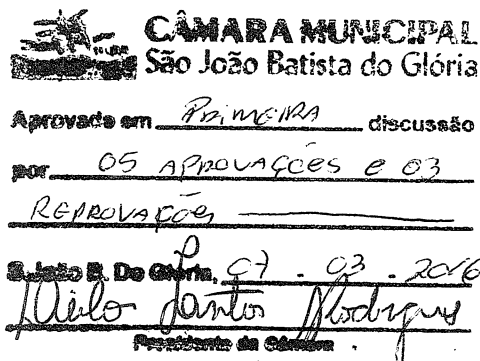 CÂMARA MUNICIPAL
São João Batista do Glória
Aprovado em PRIMEIRA discussão
por 05 APROVAÇÕES e 03
REPROVAÇÕES
S. João B. Do Glória, 07 . 03 . 2016
Santos Rodrigues
Presidente da Câmara